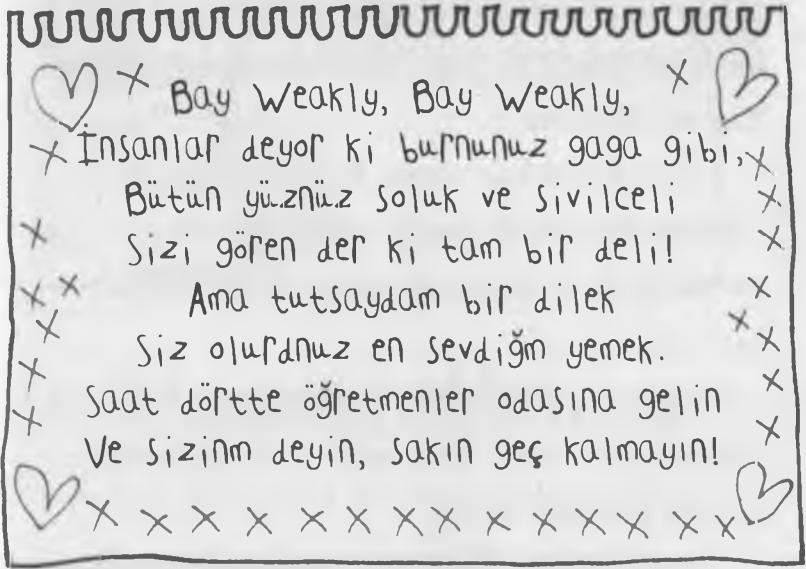 Bay Weakly, Bay Weakly,
İnsanlar deyor ki burnunuz gaga gibi,
Bütün yüznüz soluk ve sivilceli
Sizi gören der ki tam bir deli!
Ama tutsaydam bir dilek
Siz olurdnuz en sevdiğm yemek.
Saat dörtte öğretmenler odasına gelin
Ve sizinm deyin, sakın geç kalmayın!